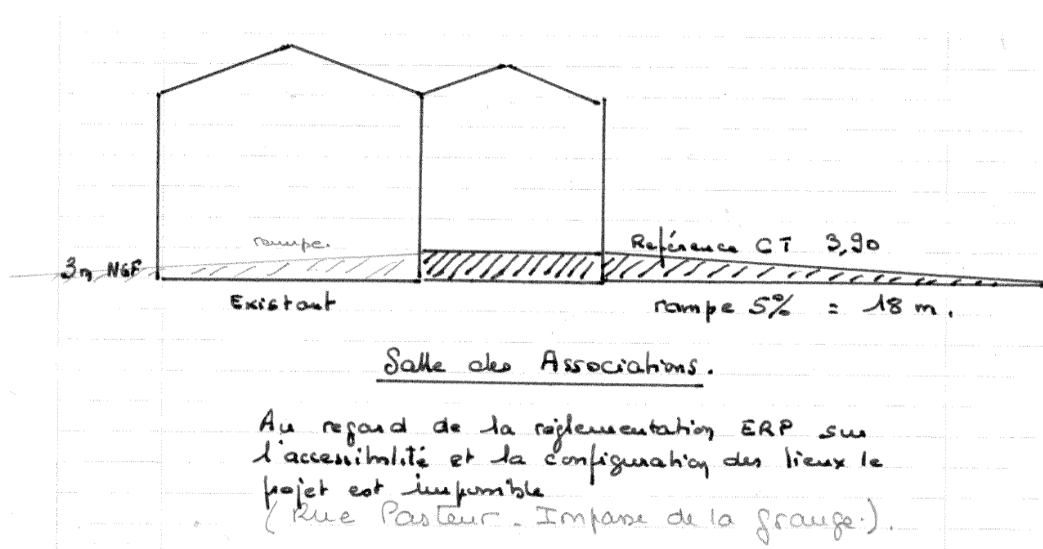 rampe.
Référence CT 3,90
3m NGF
Existant
rampe 5% = 18 m.
Salle des Associations.
Au regard de la réglementation ERP sur
l'accessibilité et la configuration des lieux le
projet est impossible
(Rue Pasteur - Impasse de la grange.).